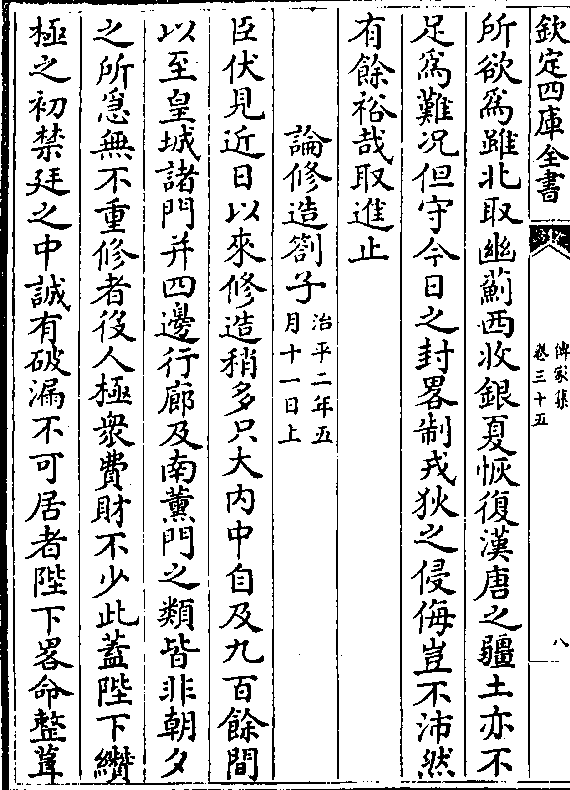 欽定四庫全書
傳家集
卷三十五
八
所欲為雖北取幽薊西收銀夏恢復漢唐之疆土亦不
足為難况但守今日之封畧制戎狄之侵侮豈不沛然
有餘裕哉取進止
論修造劄子治平二年五
月十一日上
臣伏見近日以來修造稍多只大内中自及九百餘間
以至皇城諸門并四邊行廊及南薰門之類皆非朝夕
之所急無不重修者役人極衆費財不少此蓋陛下纘
極之初禁廷之中誠有破漏不可居者陛下畧命整葺